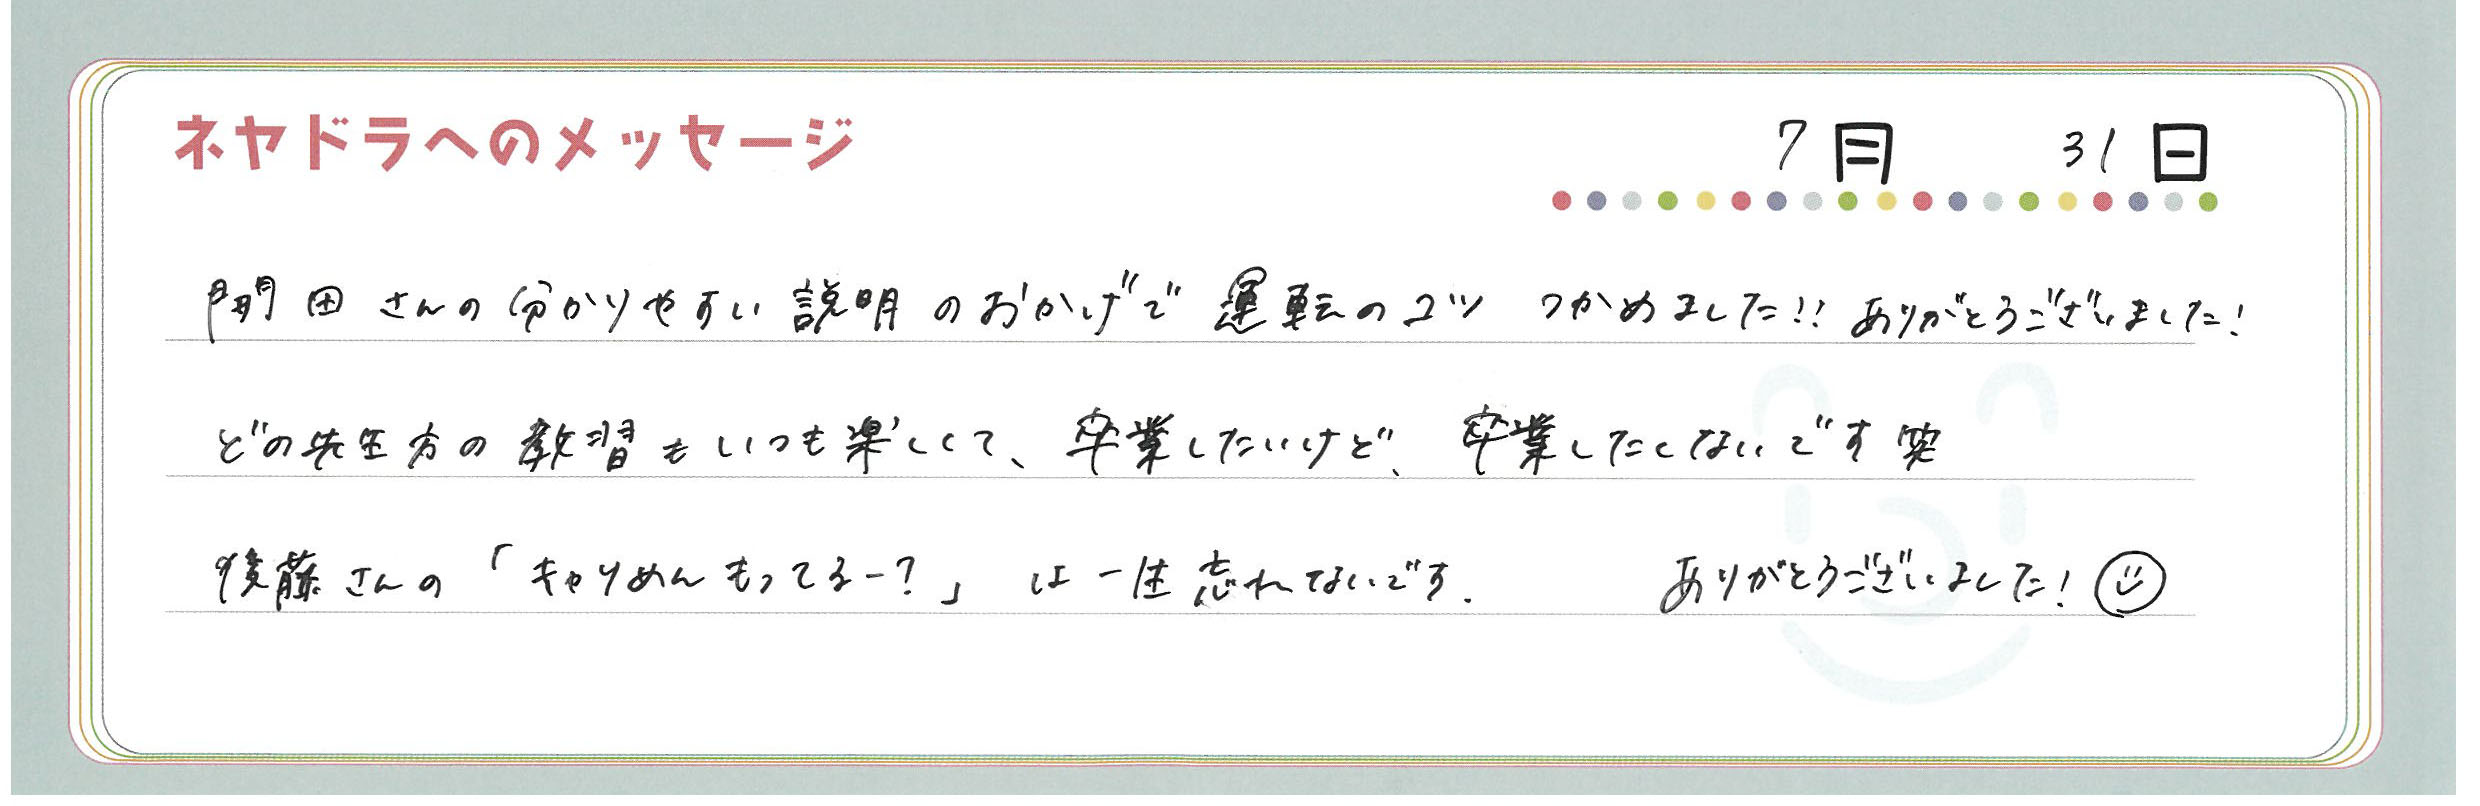 ネヤドラへのメッセージ
7月 31日
門田さんの分かりやすい説明のおかげで運転のコツ つかめました!! ありがとうございました!
どの先生方の教習もいつも楽しくて、卒業したいけど、卒業したくないです笑
後藤さんの「キャリめんもってるー?」は一生忘れないです. ありがとうございました!